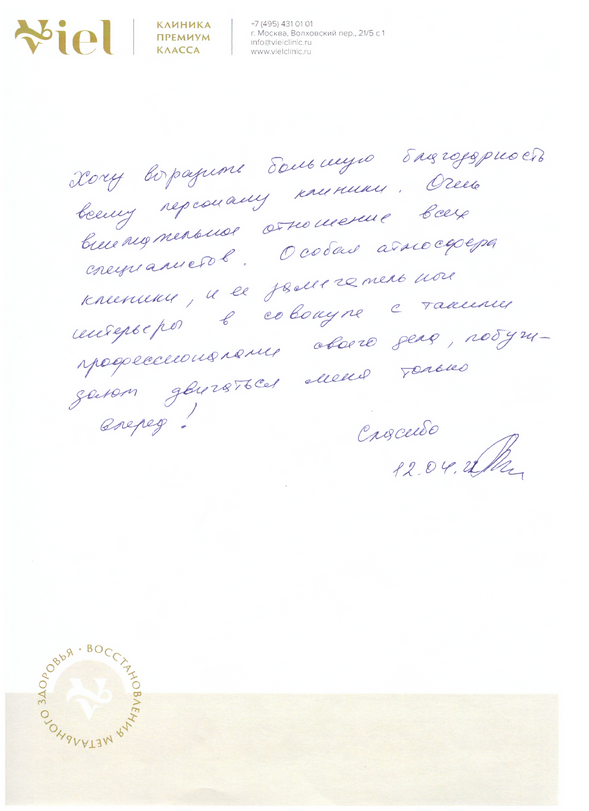 Viel
КЛИНИКА
ПРЕМИУМ
КЛАССА
+7 (495) 431 01 01
г. Москва, Волховский пер., 21/5 с 1
info@vielclinic.ru
www.vielclinic.ru
Хочу выразить большую благодарность
всему персоналу клиники. Очень
внимательное отношение всех
специалистов. Особая атмосфера
клиники, и ее замечательные
интерьеры в совокупе с такими
профессионалами своего дела, побуж-
дают двигаться меня только
вперед!
Спасибо
12.04.
ВОССТАНОВЛЕНИЯ МЕТАЛЬНОГО ЗДОРОВЬЯ